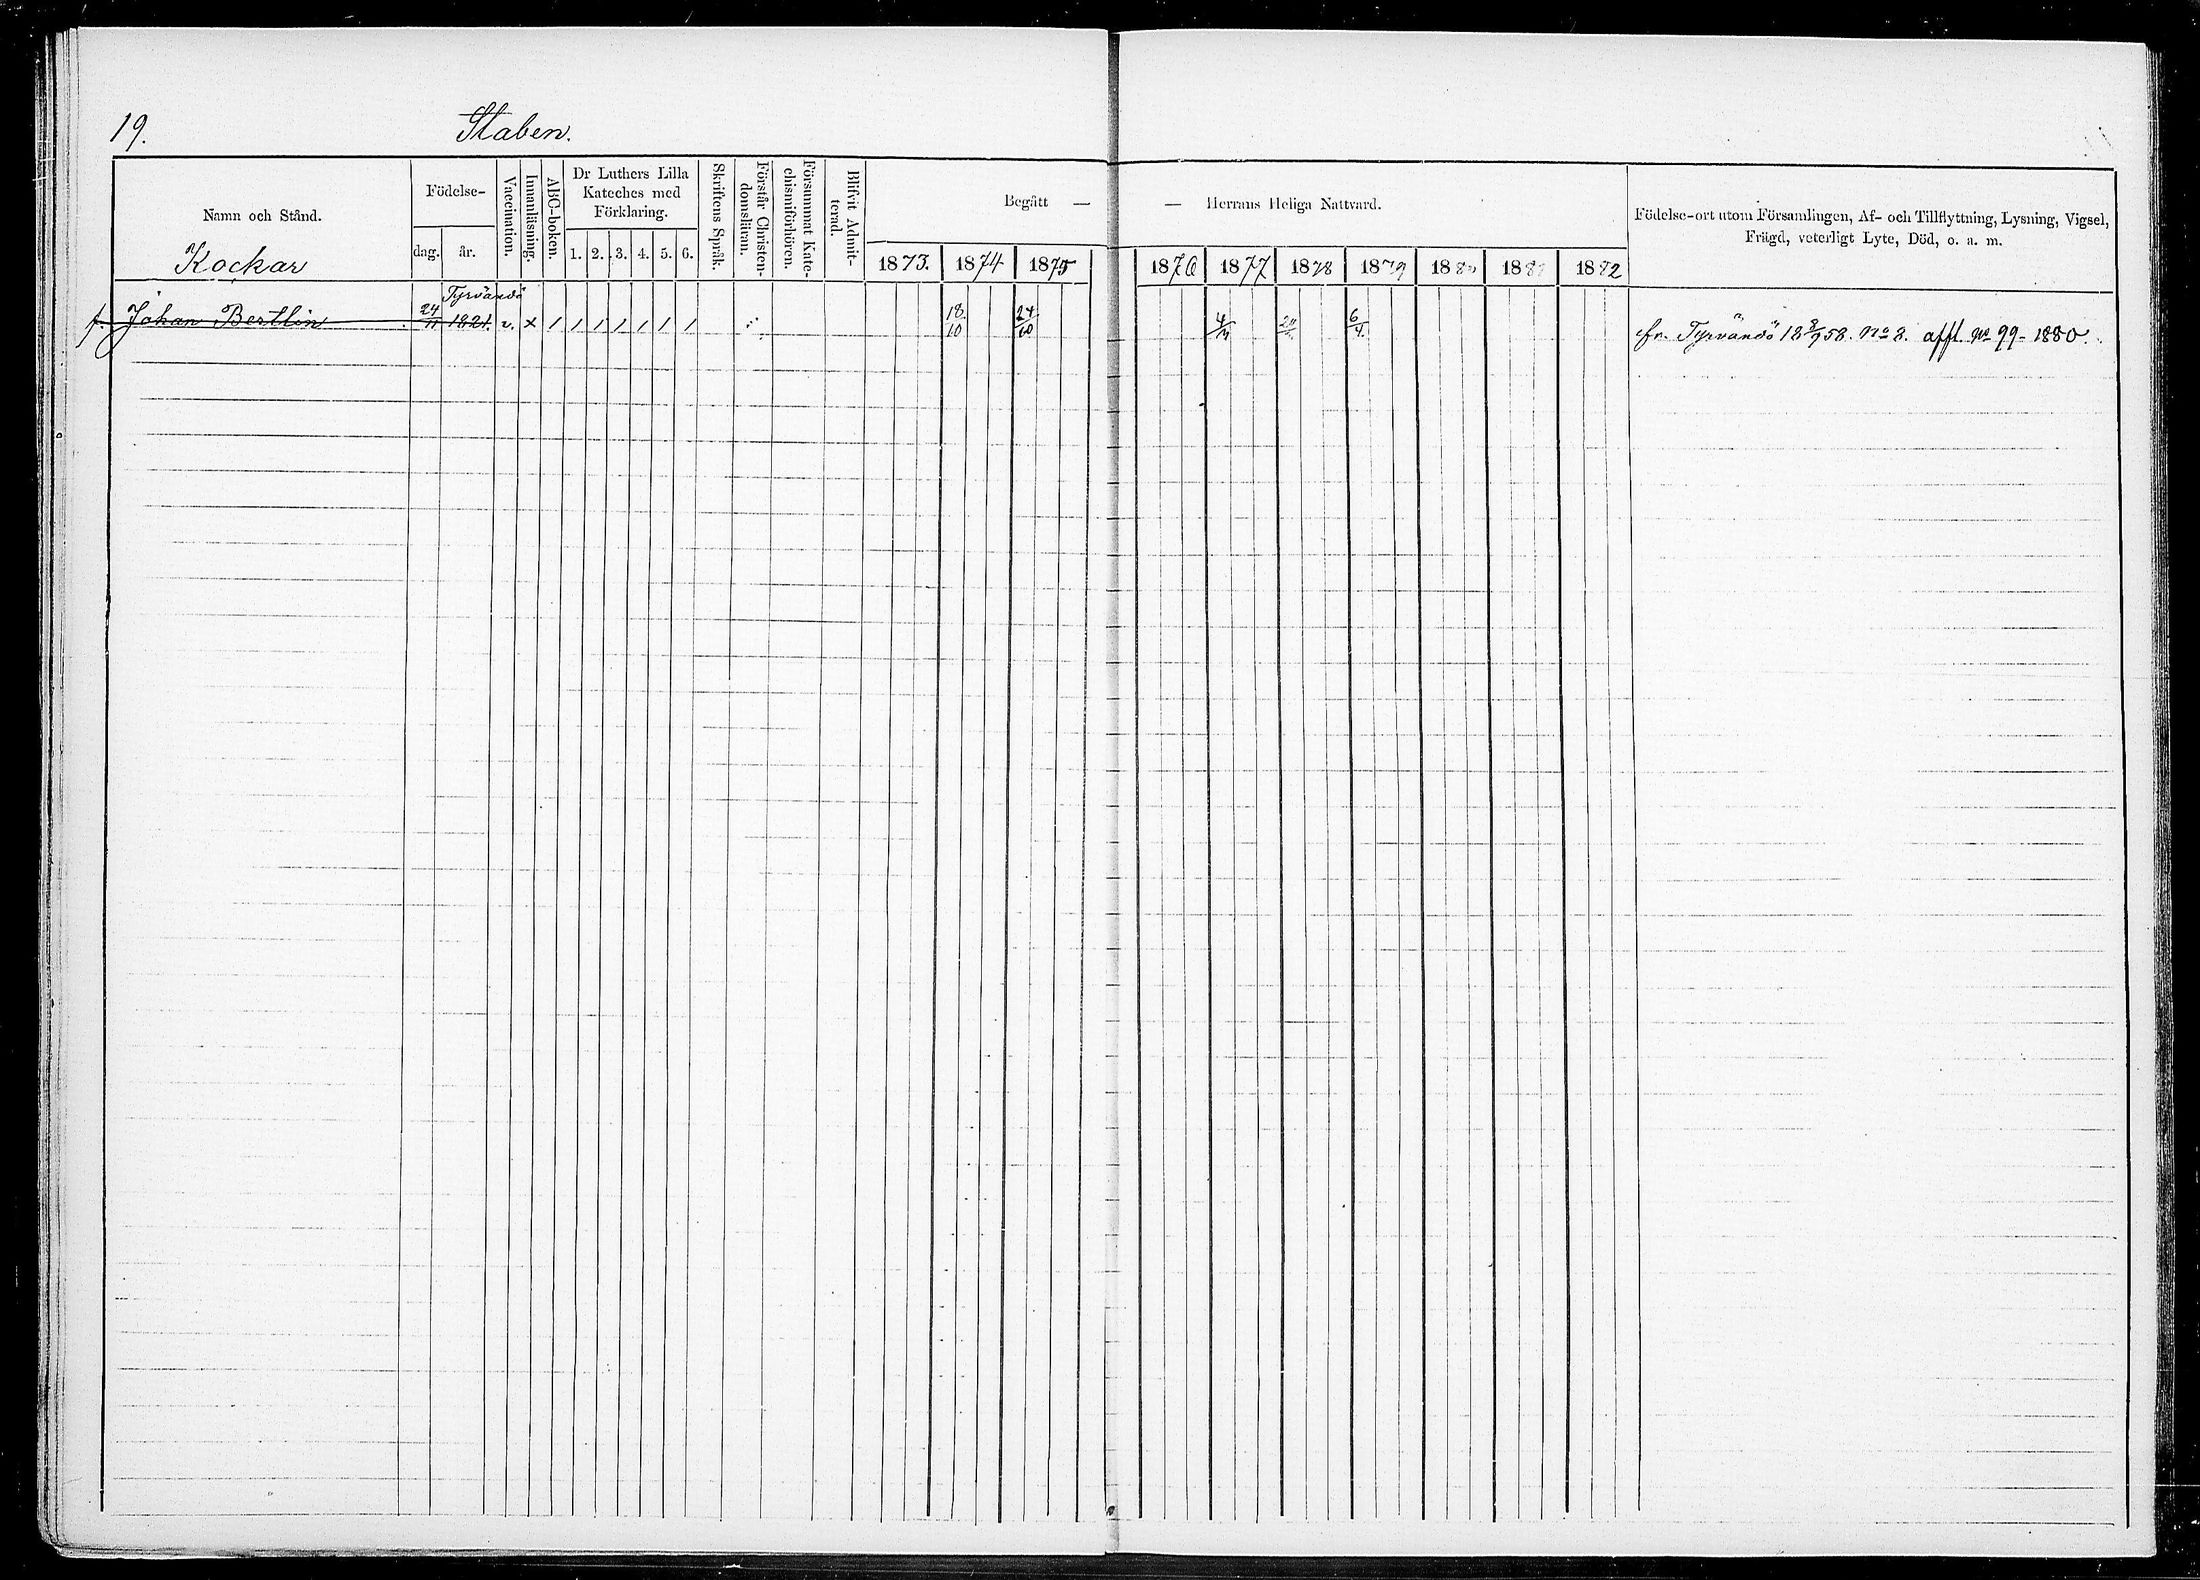 19.
Staben.
Namn och Stånd.
Kockar
Födelse-
dag. år.
Vaccination.
Innanläsning.
ABC-boken.
Dr Luthers Lilla
Kateches med
Förklaring.
1. 2. 3. 4. 5. 6.
Skriftens Språk.
Förstår Christen-
domsläran.
Försummat Kate-
chismiförhören.
Blifvit Admit-
terad.
Begått —
— Herrans Heliga Nattvard.
1873. 1874 1875 1876 1877 1878 1879 1880 1881 1882
Födelse-ort utom Församlingen, Af- och Tillflyttning, Lysning, Vigsel,
Frägd, veterligt Lyte, Död, o. a. m.
Tyrvändö
f. Johan Bertlin 24/11 1821. v. x / / / / / / / 18/10 24/10 4/11 6/4 fr. Tyrvändö 18 8/9 58. No 8. affl. No 99-1880.